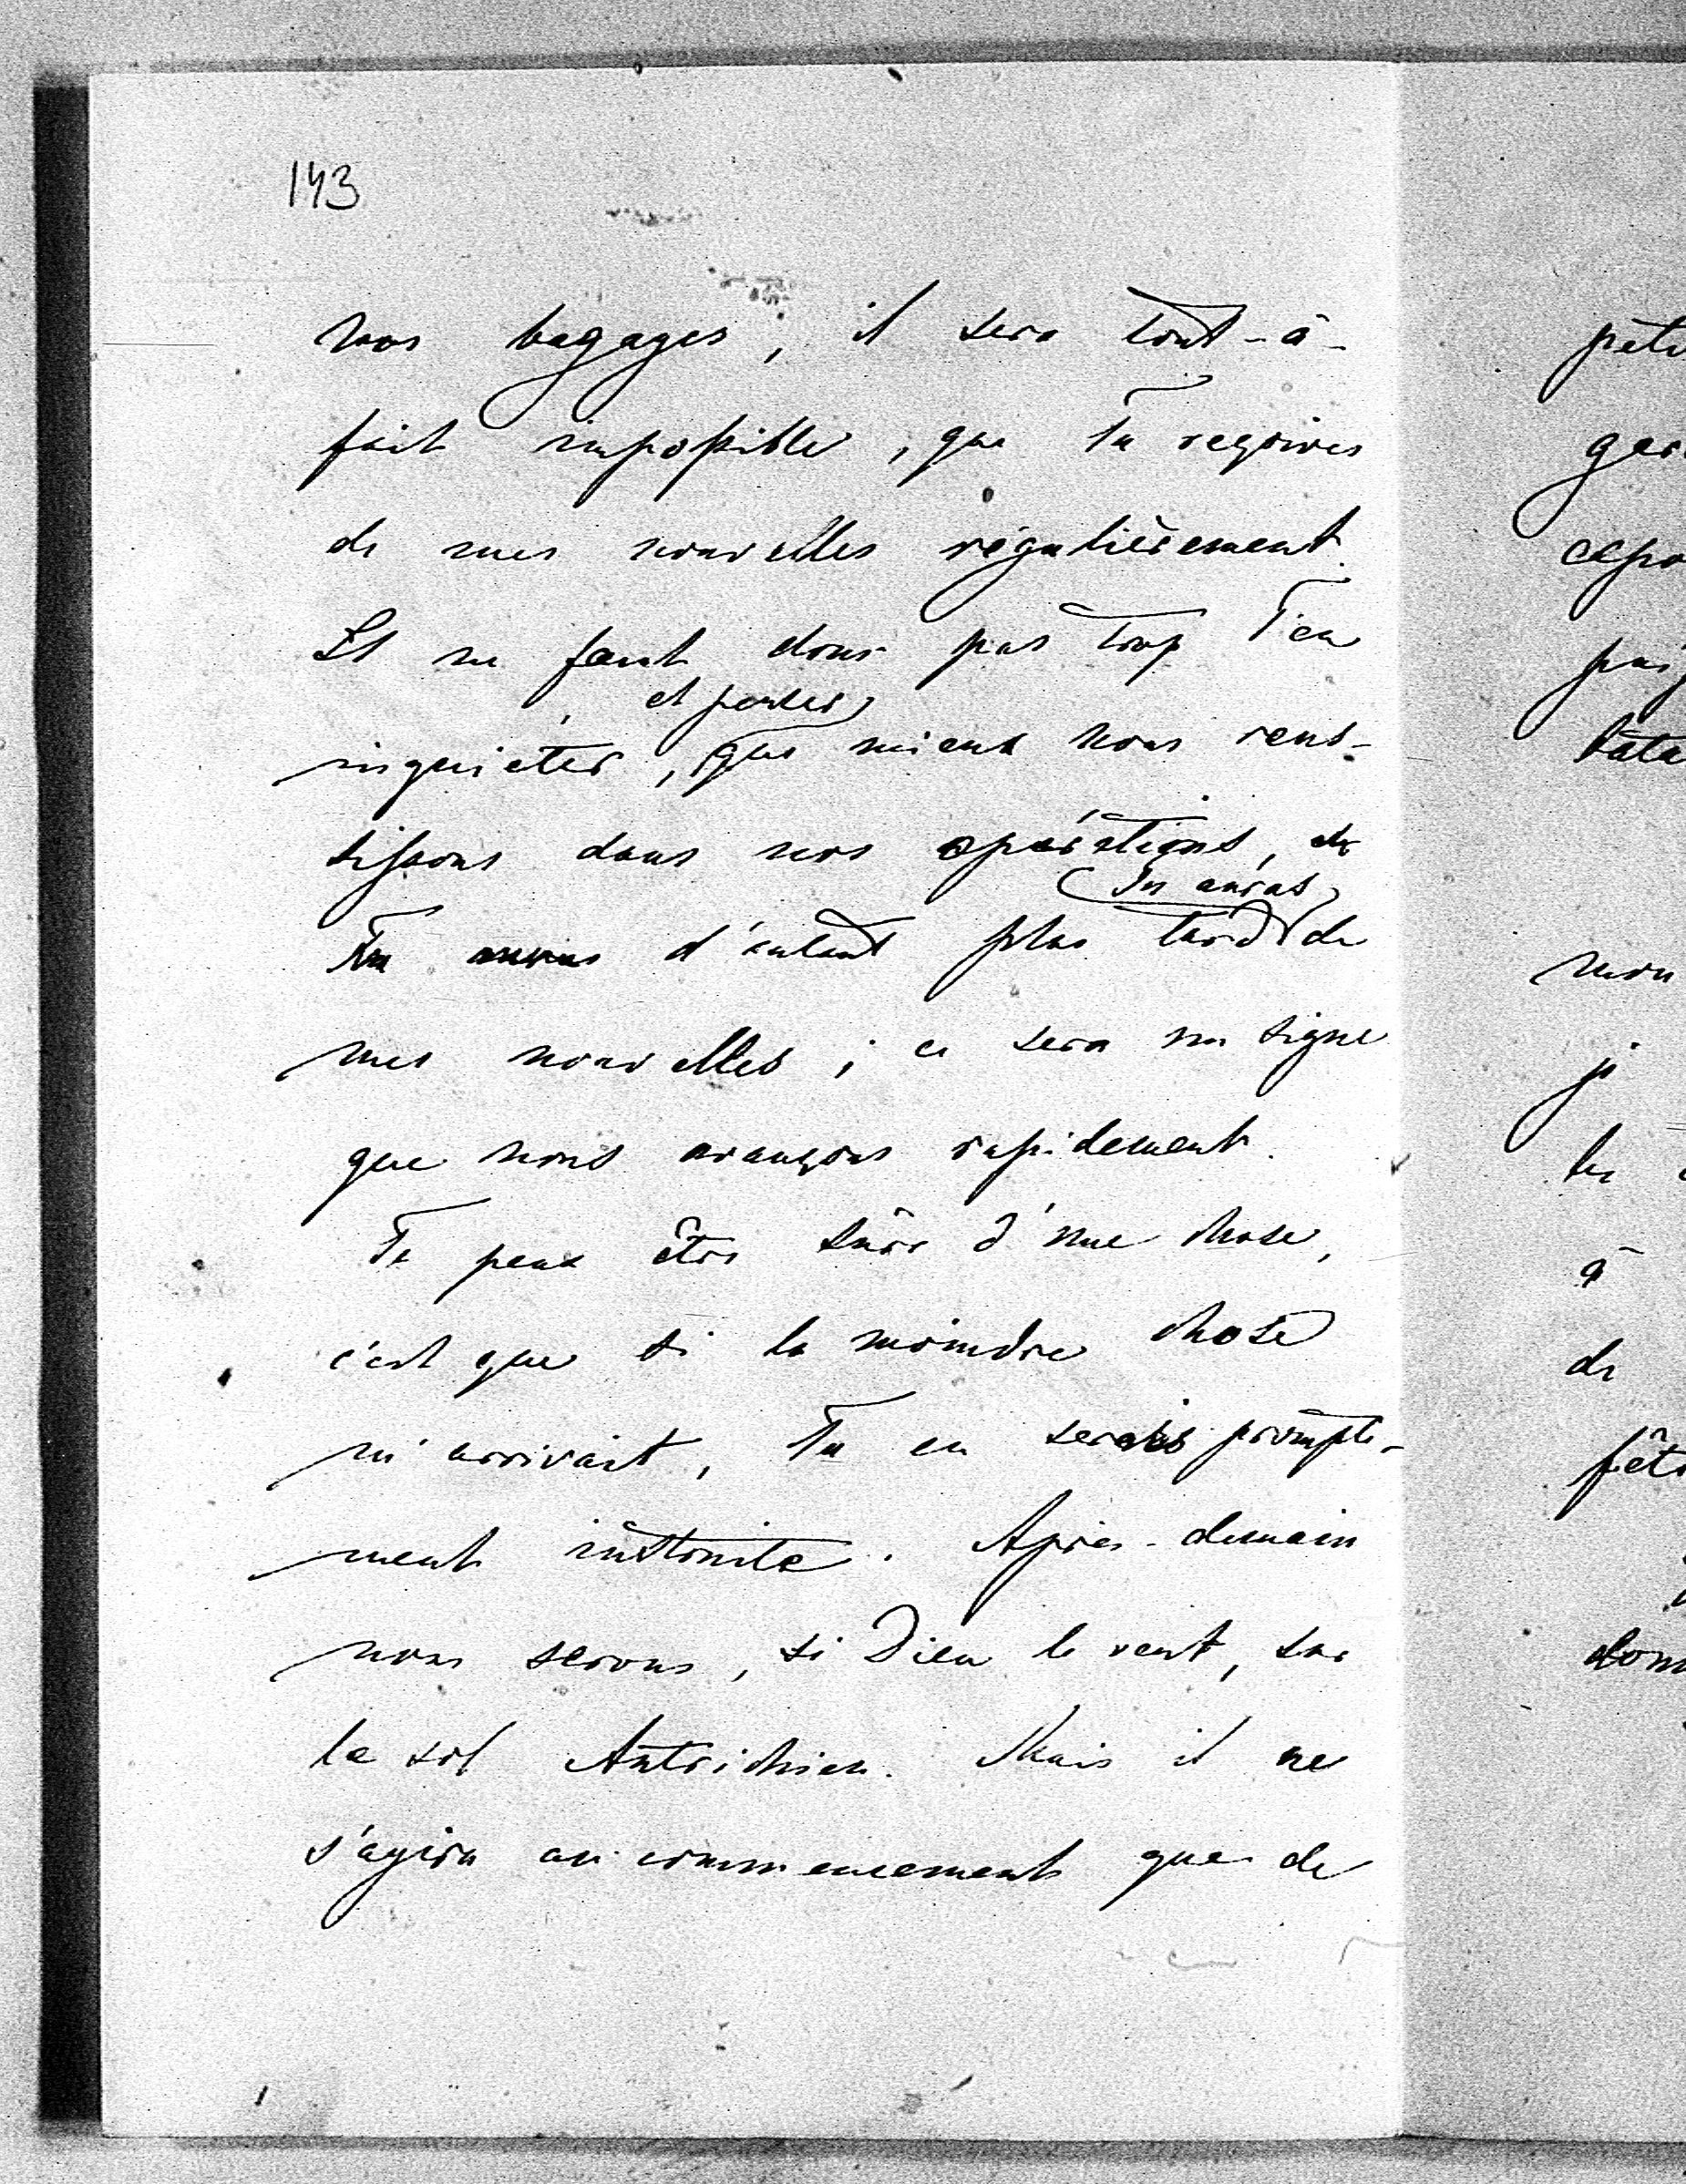 143
nos bagages, il sera tout-à-
fait impossible, que Tu reçoives
de mes nouvelles régulièrement.
Il ne faut donc pas trop T'en
et penser
inquiéter, que mieux nous réus-
sissons dans nos opérations,
Tu auras
d'autant plus tard de
mes nouvelles; ce sera un signe
que nous avançons rapidement.
Tu peux être sûre d'une chose,
c'est que si la moindre chose
m'arrivait, Tu en serais prompte-
ment instruite. Après-demain
nous serons, si Dieu le veut, sur
le sol Autrichien. Mais il ne
s'agira au commencement que de